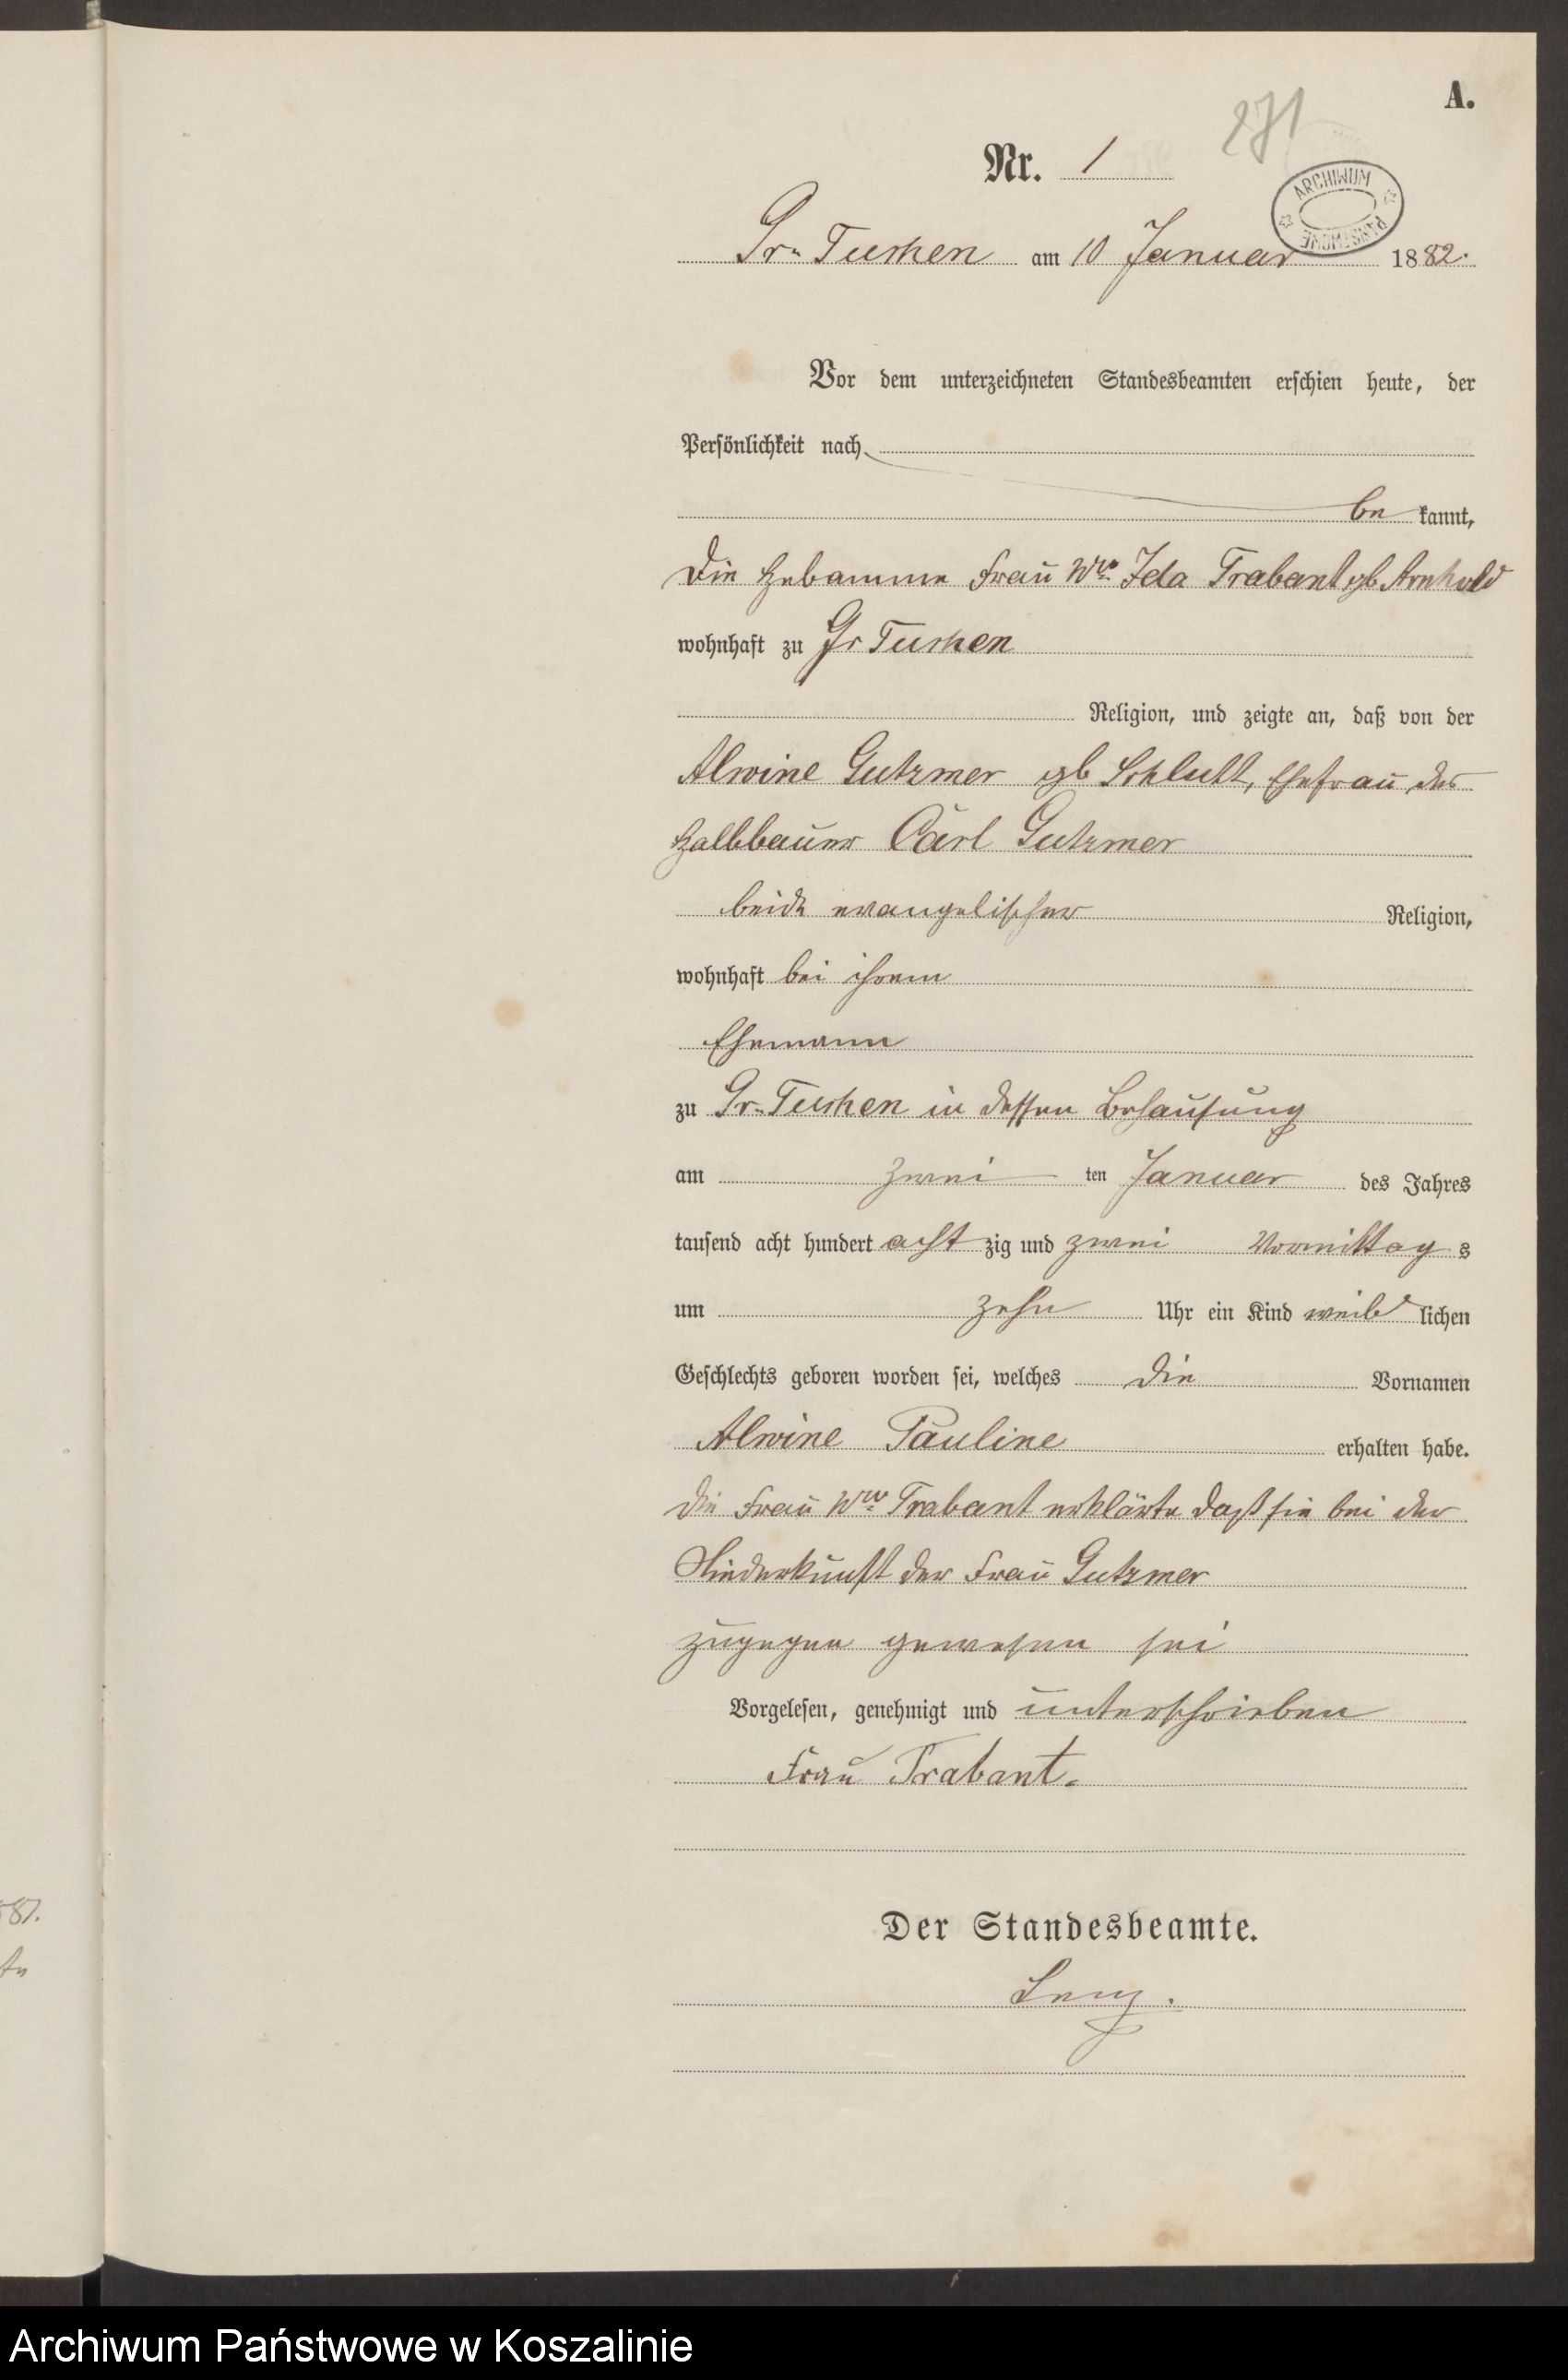 A.
271
Nr. 1
ARCHIWUM PAŃSTWOWE
Gr. Tuchen am 10 Januar 1882.
Vor dem unterzeichneten Standesbeamten erschien heute, der
Persönlichkeit nach
be kannt,
Die Hebamme Frau Wwe Ida Trabant gb Arnhold
wohnhaft zu Gr Tuchen
Religion, und zeigte an, daß von der
Alwine Gutzmer gb Schlutt, Ehefrau des
Halbbauer Carl Gutzmer
beide evangelischer Religion,
wohnhaft bei ihrem
Ehemann
zu Gr. Tuchen in dessen Behausung
am zwei ten Januar des Jahres
tausend acht hundert acht zig und zwei Vormittag s
um zehn Uhr ein Kind weib lichen
Geschlechts geboren worden sei, welches die Vornamen
Alwine Pauline erhalten habe.
Die Frau Wwe Trabant erklärte daß sie bei der
Niederkunft der Frau Gutzmer
zugegen gewesen sei
Vorgelesen, genehmigt und unterschrieben
Frau Trabant.
Der Standesbeamte.
Lenz.
Archiwum Państwowe w Koszalinie